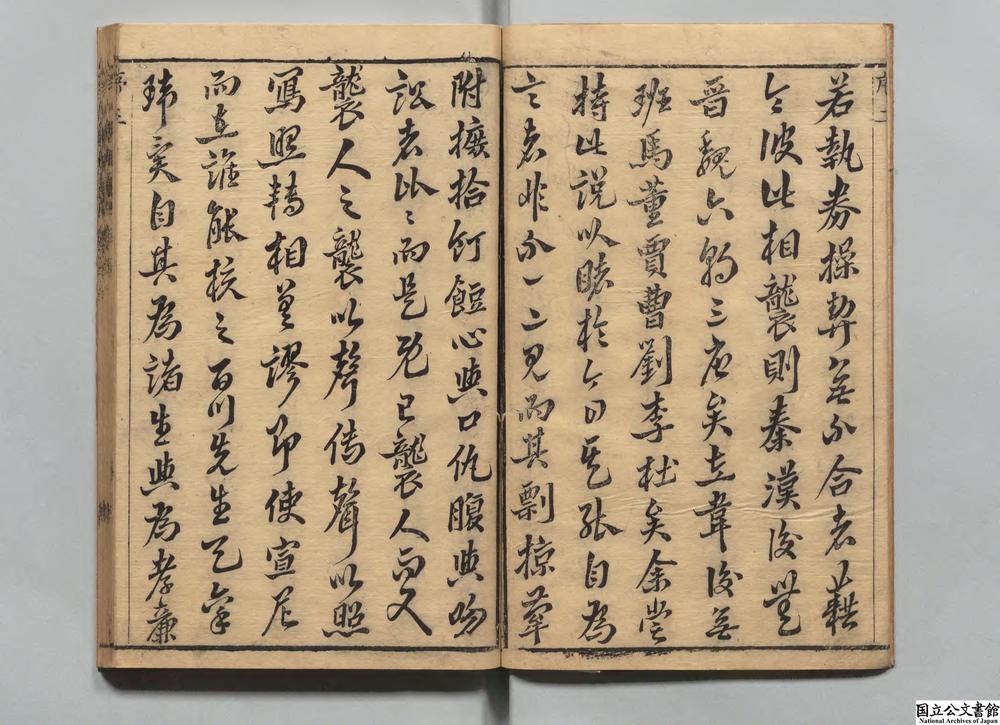 若執券操契無不合者藉
令彼此相襲則秦漢後無
晉魏六朝三唐矣左韋後無
班馬董賈曹劉李杜矣余嘗
持此說以睹於今日更張自為
言者非不一二見而其剽掠華
附摭拾飣餖心與口仇腹與吻
訟者比比而是既已襲人而又
襲人之襲以聲傳聲以照
寫照轉相差謬即使宣尼
而在誰能核之百川先生
瑋實自其為諸生與為孝廉
国立公文書館
National Archives of Japan